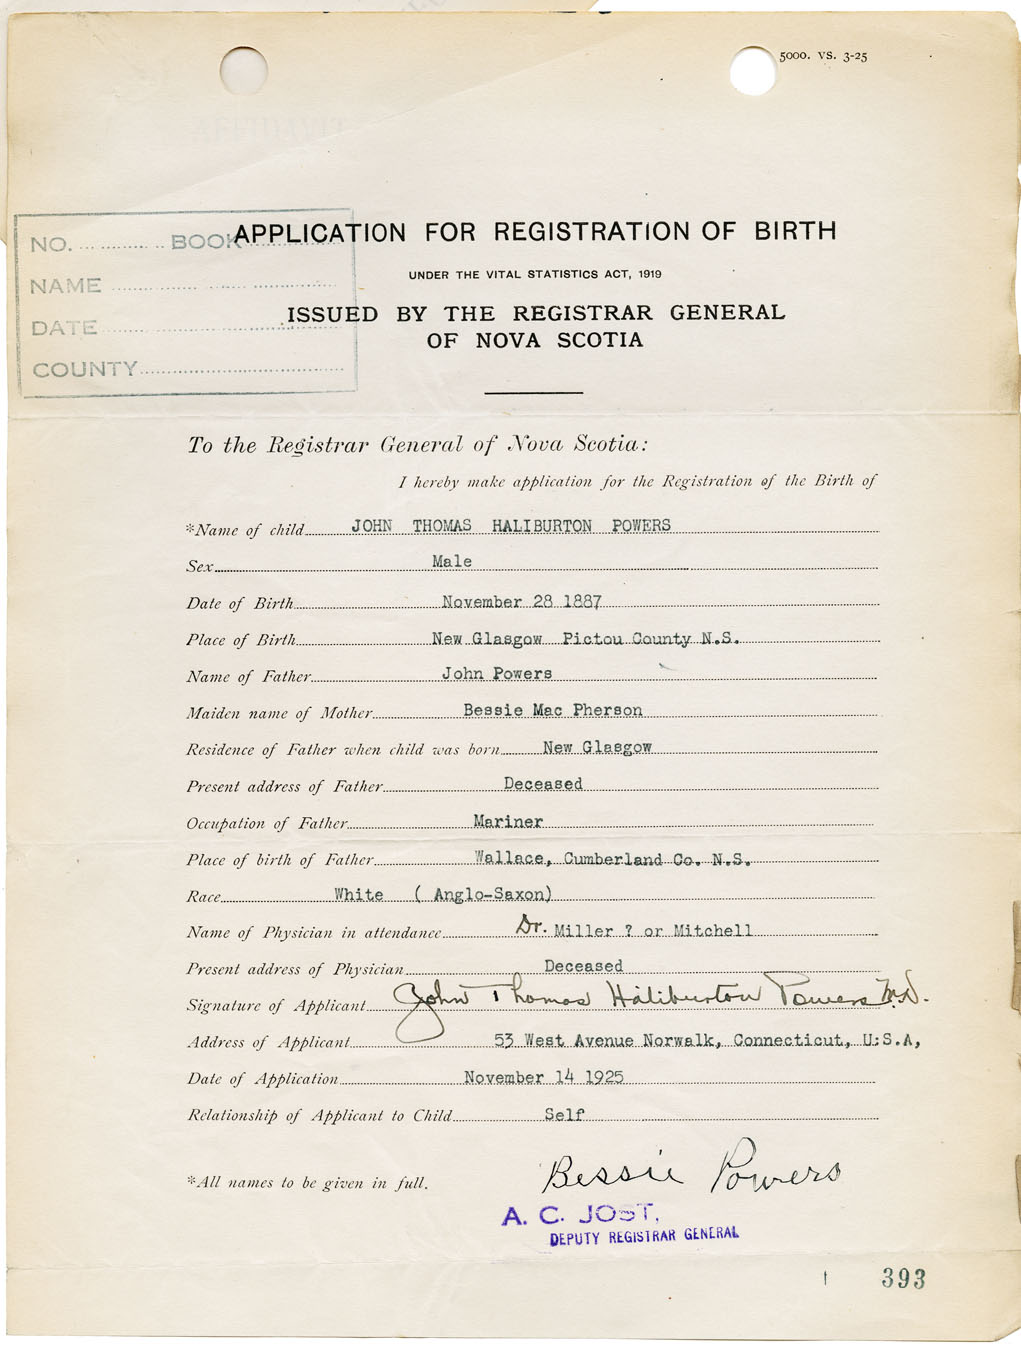 5000. VS. 3-25
NO. ............... BOOK................
APPLICATION FOR REGISTRATION OF BIRTH
UNDER THE VITAL STATISTICS ACT, 1919
NAME ................................
ISSUED BY THE REGISTRAR GENERAL
DATE ................................
OF NOVA SCOTIA
COUNTY................................
To the Registrar General of Nova Scotia:
I hereby make application for the Registration of the Birth of
*Name of child JOHN THOMAS HALIBURTON POWERS
Sex Male
Date of Birth November 28 1887
Place of Birth New Glasgow Pictou County N.S.
Name of Father John Powers
Maiden name of Mother Bessie Mac Pherson
Residence of Father when child was born New Glasgow
Present address of Father Deceased
Occupation of Father Mariner
Place of birth of Father Wallace, Cumberland Co. N.S.
Race White ( Anglo-Saxon)
Name of Physician in attendance Dr. Miller ? or Mitchell
Present address of Physician Deceased
Signature of Applicant John Thomas Haliburton Powers M.D.
Address of Applicant 53 West Avenue Norwalk, Connecticut, U:S.A,
Date of Application November 14 1925
Relationship of Applicant to Child Self
*All names to be given in full. Bessie Powers
A. C. JOST,
DEPUTY REGISTRAR GENERAL
393